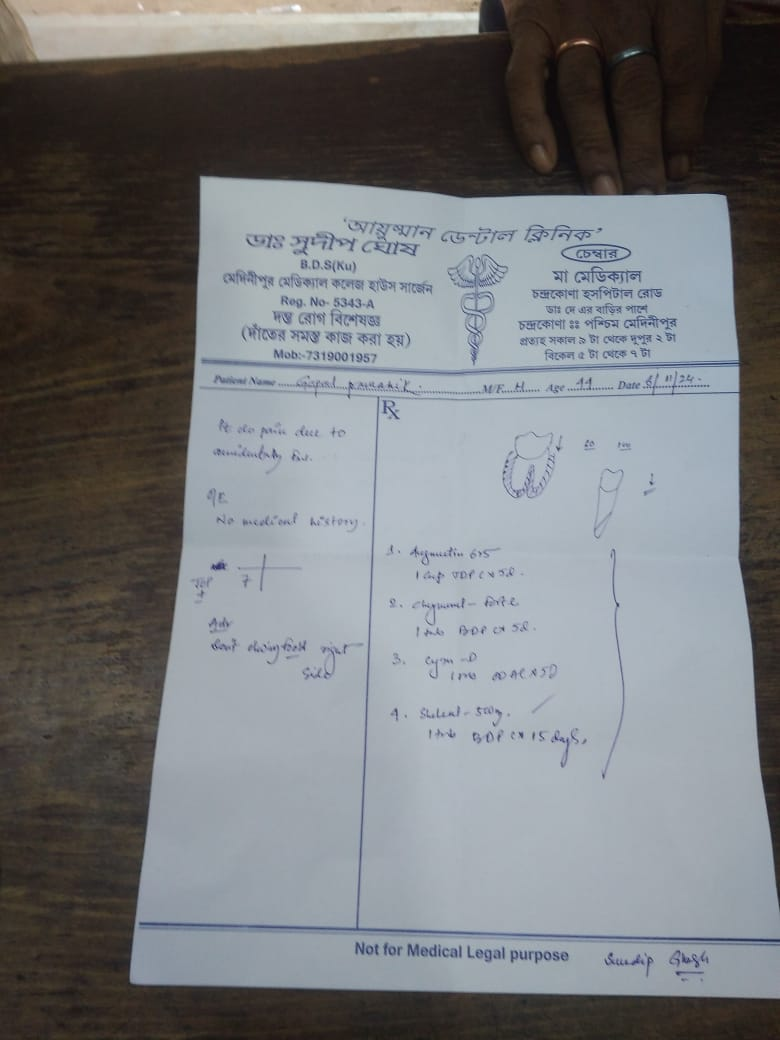 'আয়ুষ্মান ডেন্টাল ক্লিনিক'
ডাঃ সুদীপ ঘোষ
B.D.S(Ku)
মেদিনীপুর মেডিক্যাল কলেজ হাউস সার্জেন
Reg. No- 5343-A
দন্ত রোগ বিশেষজ্ঞ
(দাঁতের সমস্ত কাজ করা হয়)
Mob:-7319001957
চেম্বার
মা মেডিক্যাল
চন্দ্রকোণা হসপিটাল রোড
ডাঃ দে এর বাড়ির পাশে
চন্দ্রকোণা ঃঃ পশ্চিম মেদিনীপুর
প্রত্যহ সকাল ৯ টা থেকে দুপুর ২ টা
বিকেল ৫ টা থেকে ৭ টা
Patient Name ...... Gopal ...... M/F. M ... Age 44 ... Date 8/11/24.
Pt c/o pain due to
O/E
No medical history.
7
TOP
+
Adv
Don't chewing food right
Side
Rx
1. Augmentin 625
1 cap TDPC x 5d.
2. - forte
1 tab BDPC x 5d.
3. -D
1 tab x 5D
4. Shelcal - 500g.
1 tab BDPC x 15 days.
Not for Medical Legal purpose
Sudip Ghosh